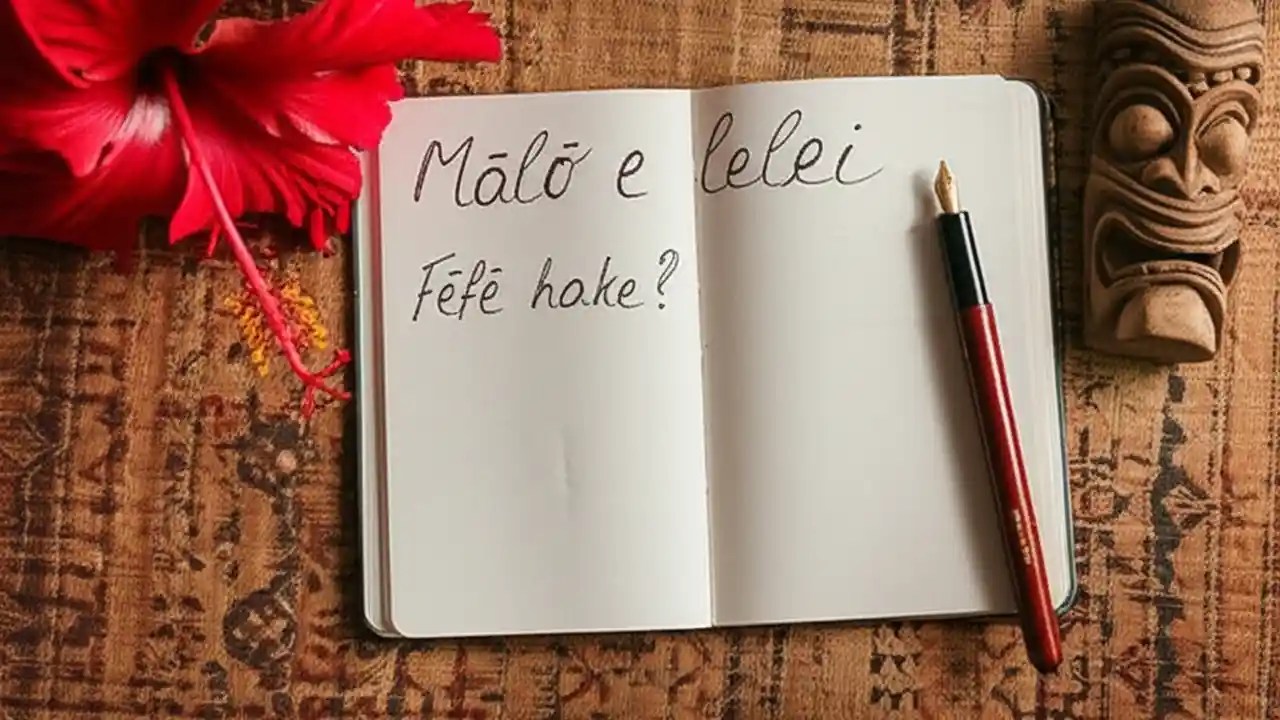 Mālō e lelei
Fēfē hake?